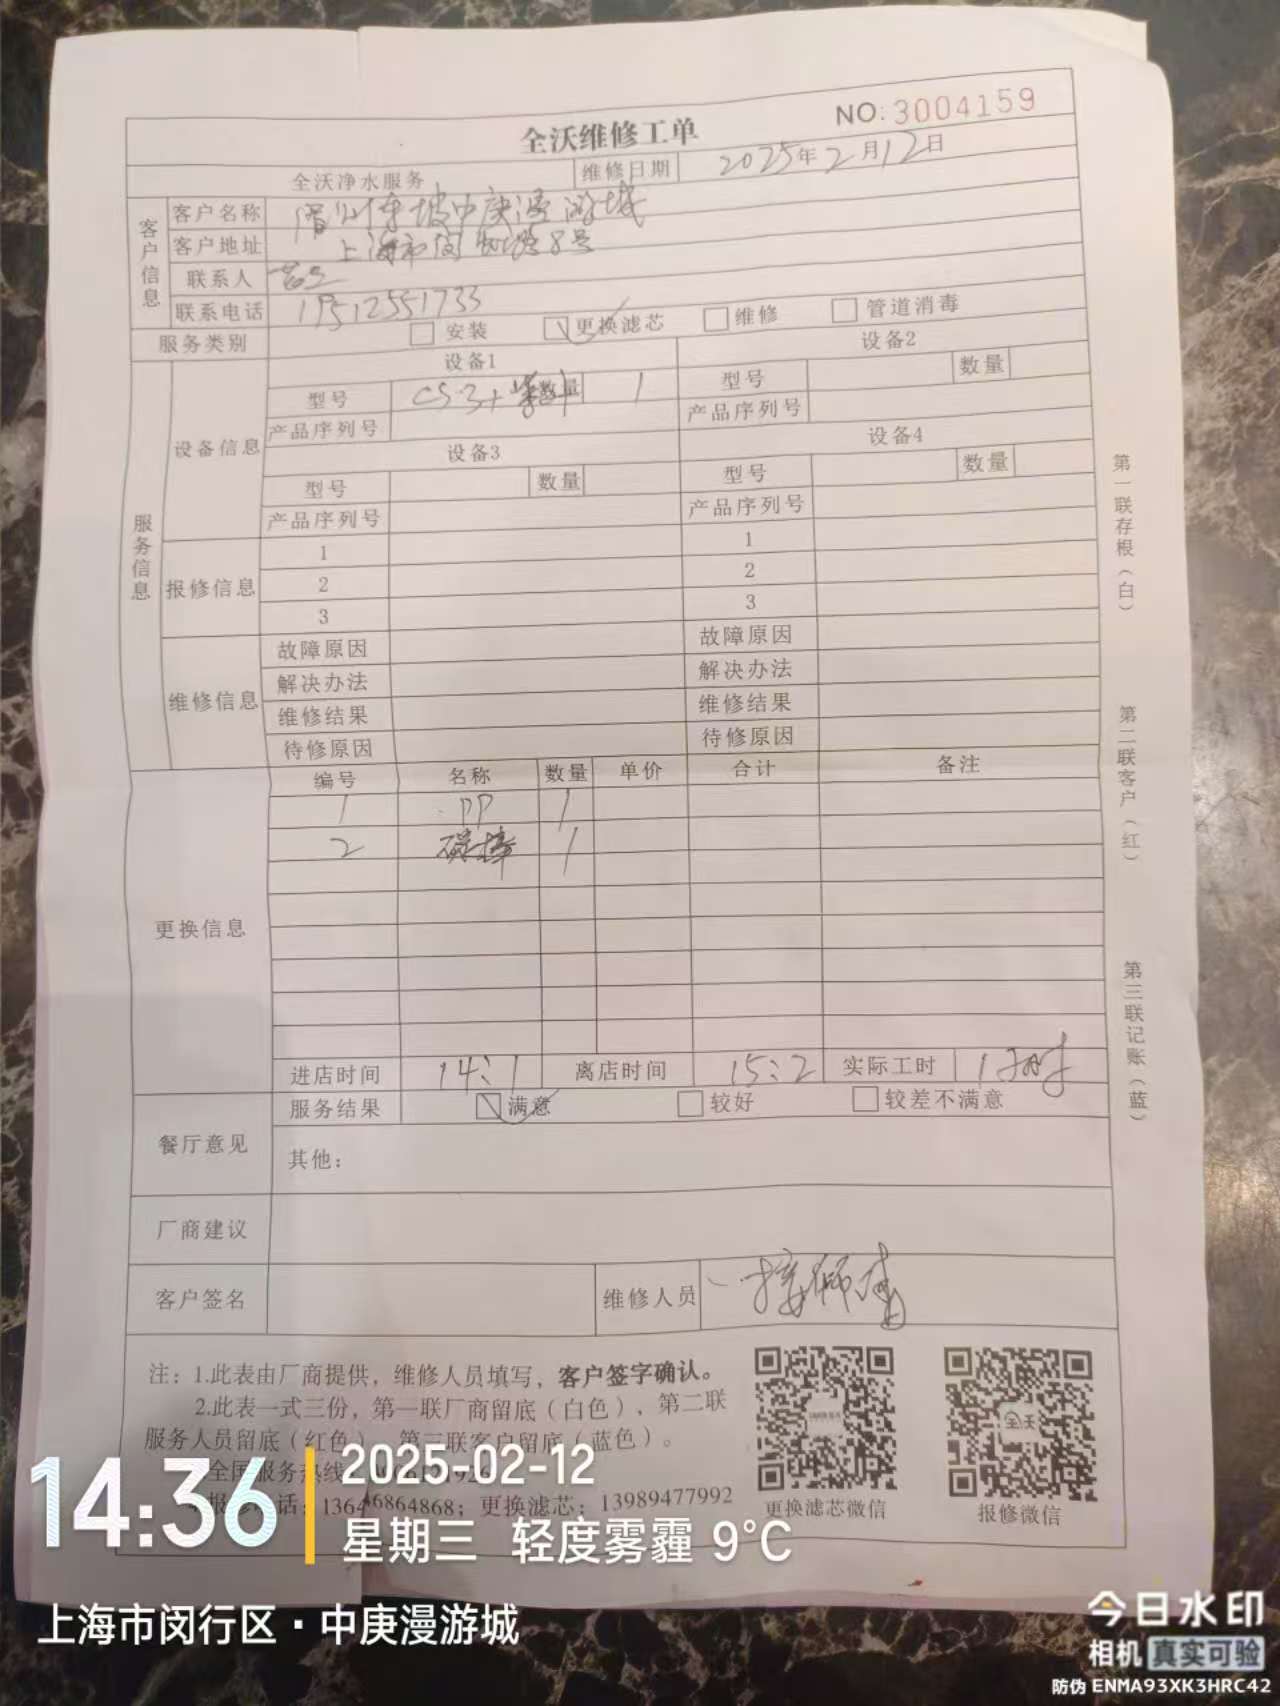 NO:3004159
全沃维修工单
全沃净水服务 维修日期 2025年2月12日
客户信息
客户名称 中庚漫游城
客户地址 上海市闵 路8号
联系人
联系电话 19512551733
服务类别 安装 更换滤芯 维修 管道消毒
服务信息
设备信息
设备1 设备2
型号 CS3+ 数量 1 型号 数量
产品序列号 产品序列号
设备3 设备4
型号 数量 型号 数量
产品序列号 产品序列号
报修信息
1 1
2 2
3 3
维修信息
故障原因 故障原因
解决办法 解决办法
维修结果 维修结果
待修原因 待修原因
更换信息
编号 名称 数量 单价 合计 备注
1 PP 1
2 碳棒 1
进店时间 14:1 离店时间 15:2 实际工时 1小时
餐厅意见
服务结果 满意 较好 较差不满意
其他:
厂商建议
客户签名 维修人员 师傅
第一联存根(白)
第二联客户(红)
第三联记账(蓝)
注: 1.此表由厂商提供, 维修人员填写, 客户签字确认。
2.此表一式三份, 第一联厂商留底(白色), 第二联
服务人员留底(红色), 第三联客户留底(蓝色)。
全国服务热线
话: 更换滤芯: 13989477992
更换滤芯微信
报修微信
全沃
14:36
2025-02-12
星期三 轻度雾霾 9°C
上海市闵行区·中庚漫游城
今日水印
相机 真实可验
防伪 ENMA93XK3HRC42